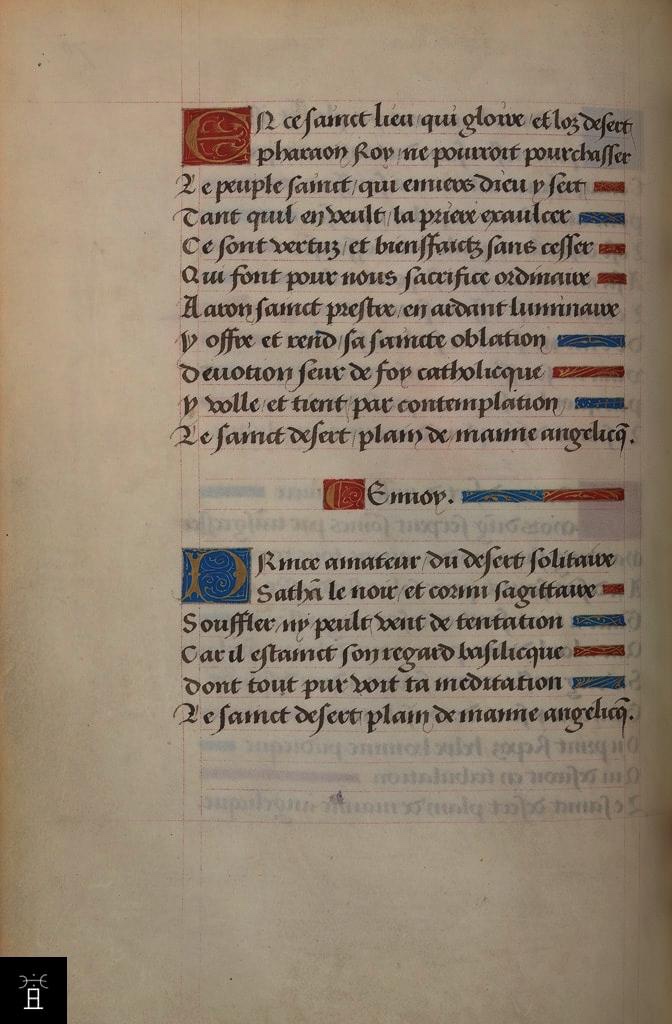 En ce sainct lieu / qui gloire / et loz desert
Pharaon Roy / ne pourroit pourchasser
Le peuple sainct / qui enuers dieu y sert
Tant quil en veult / la priere exaulcer
Ce sont vertuz / et biensffaictz sans cesser
Qui font pour nous sacrifice ordinaire
Aaron sainct prestre / en ardant luminaire
y offre et rend / sa saincte oblation
deuotion seur de foy catholicque
y volle / et tient par contemplation
Le sainct desert / plain de manne angelicq̃.
Lenuoy.
Prince amateur / du desert solitaire
Sathã le noir / et cornu sagittaire
Souffler / ny peult vent de tentation
Car il estainct son regard basilicque
dont tout pur voit ta meditation
Le sainct desert / plain de manne angelicq̃.